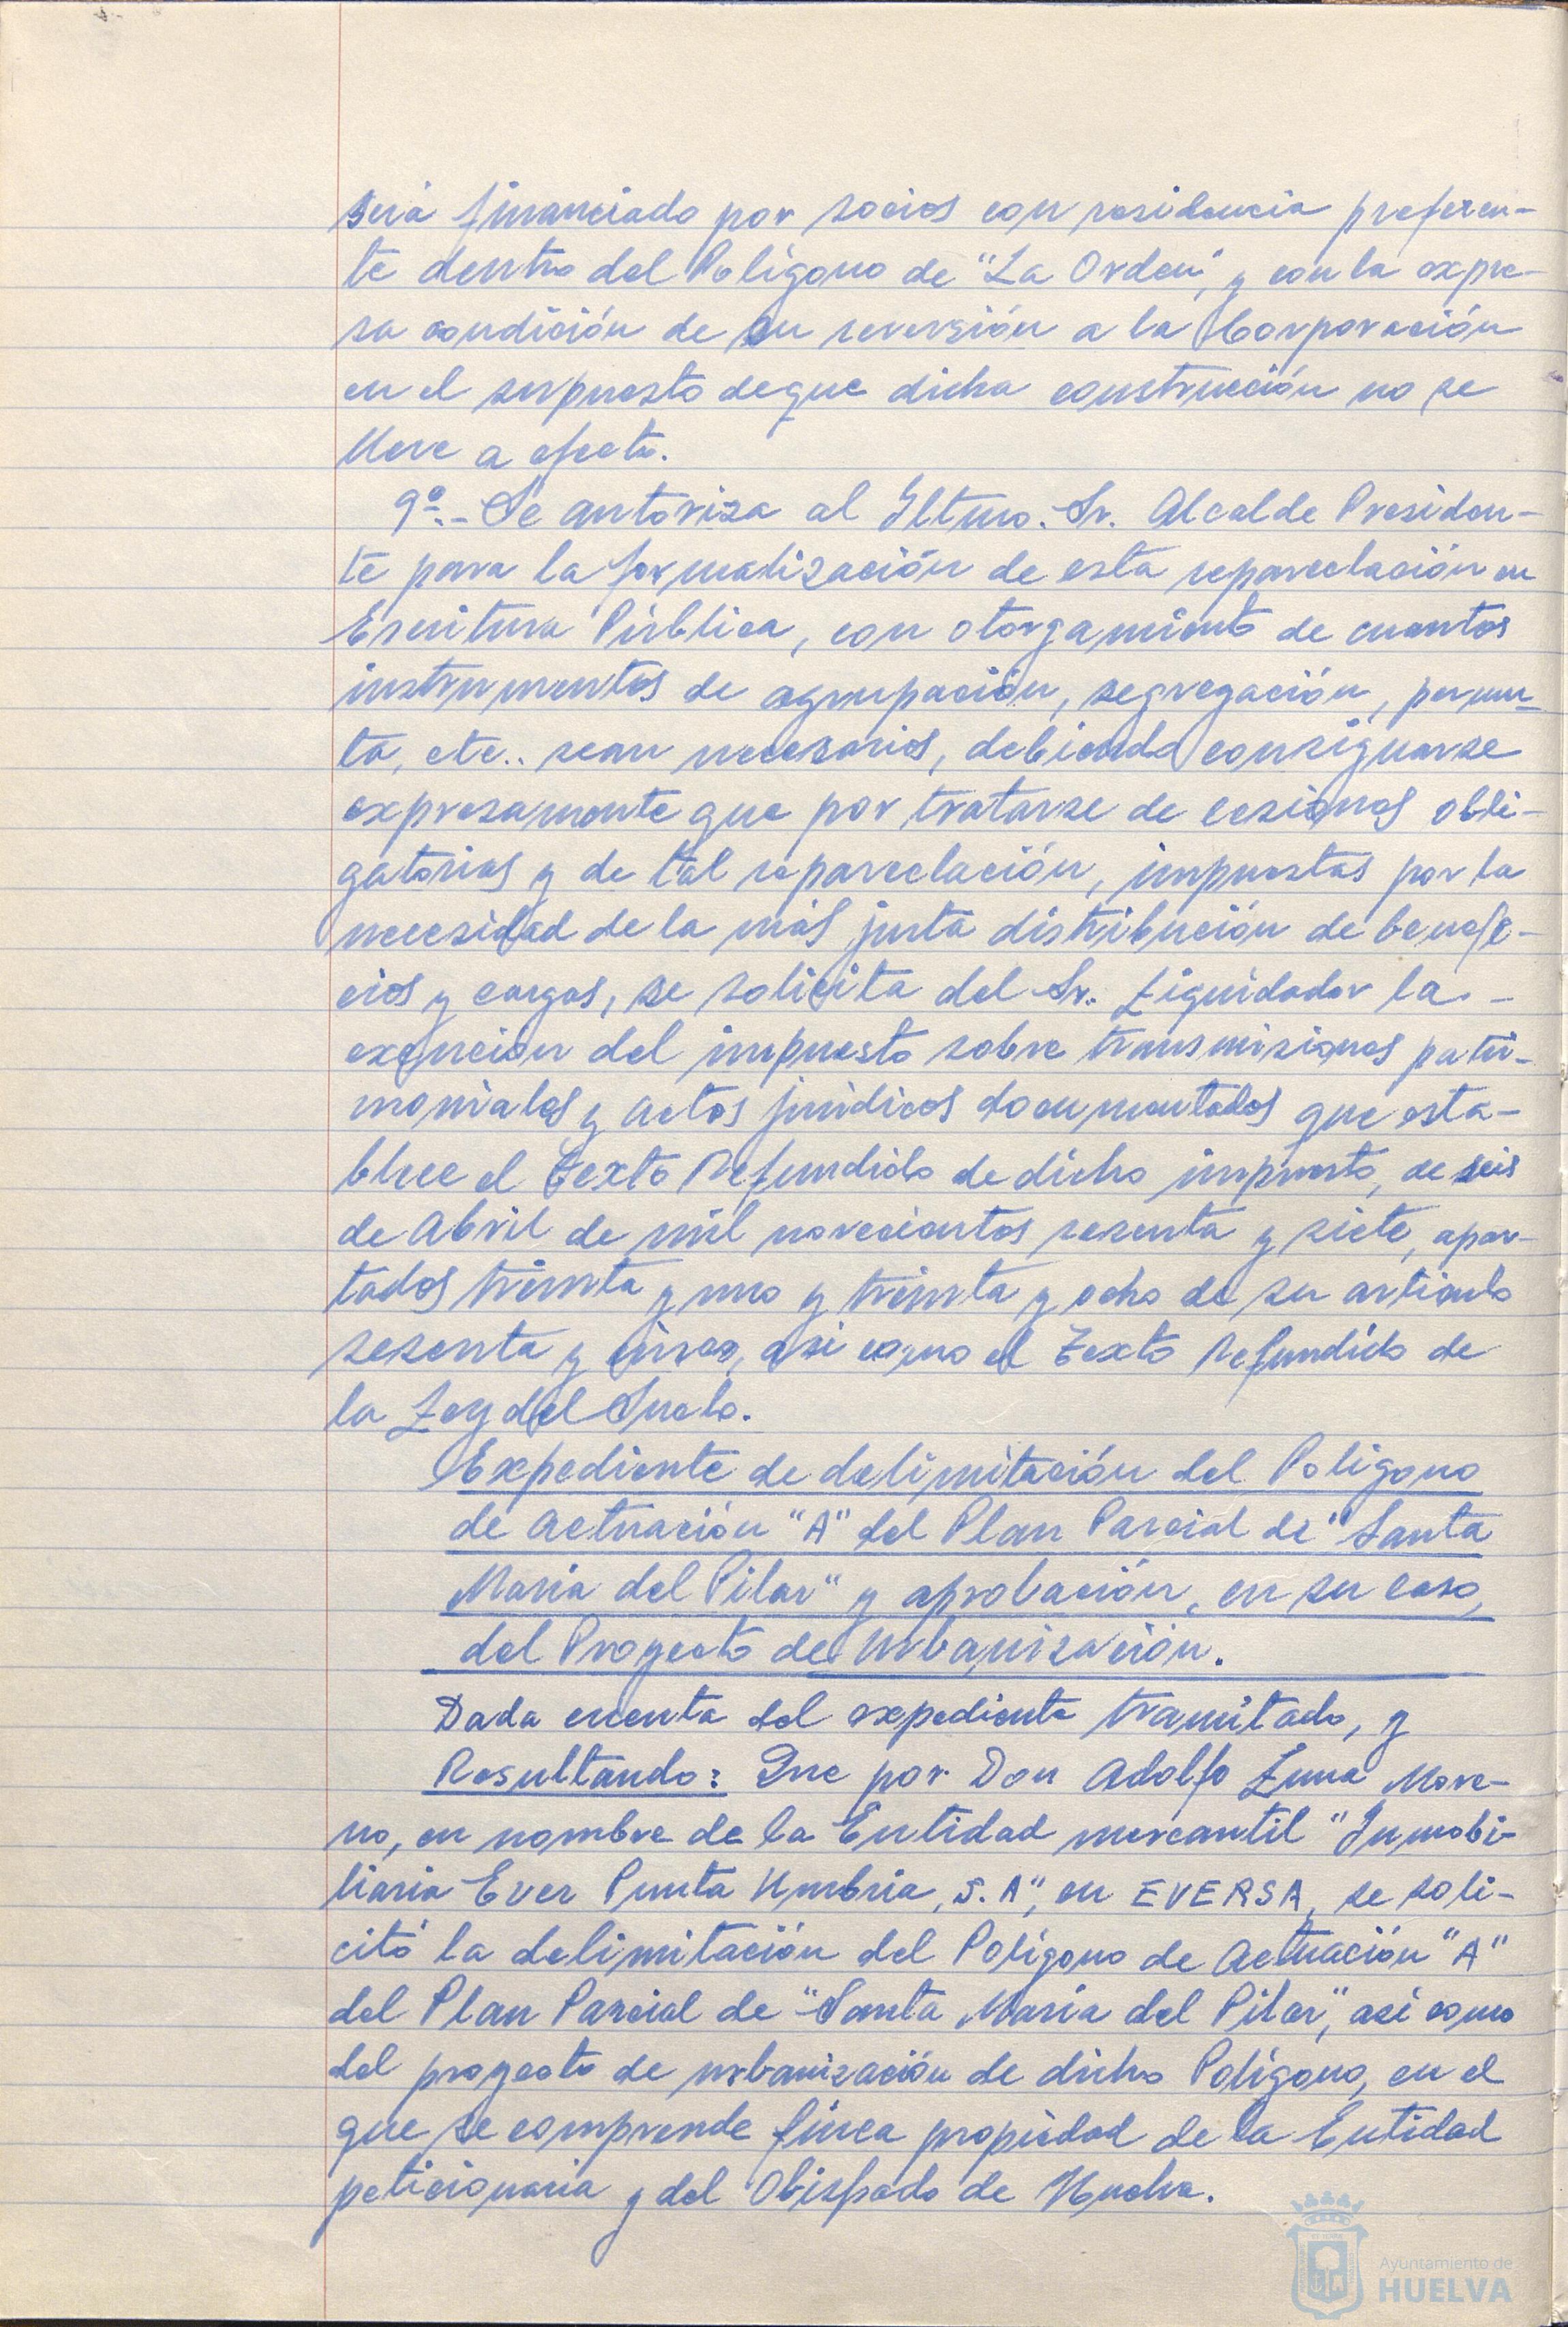 será financiado por socios con residencia preferen-
te dentro del Polígono de "La Orden", y con la expre-
sa condición de su reversión a la Corporación
en el supuesto de que dicha construcción no se
lleve a efecto.
9º.- Se autoriza al Iltmo. Sr. Alcalde Presiden-
te para la formalización de esta reparcelación en
Escritura Pública, con otorgamiento de cuantos
instrumentos de agrupación, segregación, permu-
ta, etc.. sean necesarios, debiendo consignarse
expresamente que por tratarse de cesiones obli-
gatorias y de tal reparcelación, impuestas por la
necesidad de la más justa distribución de benefi-
cios y cargas, se solicita del Sr. Liquidador la.-
exención del impuesto sobre transmisiones patri-
moniales y actos jurídicos documentados que esta-
blece el Texto Refundido de dicho impuesto, de seis
de Abril de mil novecientos sesenta y siete, apar-
tados treinta y uno y treinta y ocho de su artículo
sesenta y cinco, asi como el Texto Refundido de
la Ley del Suelo.
Expediente de delimitación del Polígono
de actuación "A" del Plan Parcial de "Santa
María del Pilar" y aprobación, en su caso,
del Proyecto de Urbanización.
Dada cuenta del expediente tramitado, y
Resultando: Que por Don Adolfo Luna More-
no, en nombre de la Entidad mercantil "Inmobi-
liaria Ever Punta Umbria, S.A", en EVERSA, se soli-
citó la delimitación del Polígono de Actuación "A"
del Plan Parcial de "Santa María del Pilar", asi como
del proyecto de urbanización de dicho Polígono, en el
que se comprende finca propiedad de la Entidad
peticionaria y del Obispado de Huelva.
Ayuntamiento de
HUELVA